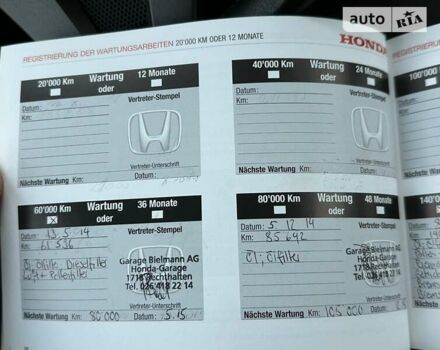 auto RIA
REGISTRIERUNG DER WARTUNGSARBEITEN 20'000 KM ODER 12 MONATE
HONDA
20'000 Km Wartung 12 Monate
oder
Datum:
Km:
Vertreter-Stempel
Vertreter-Unterschrift
Nächste Wartung Km: Datum:
40'000 Km Wartung 24 Monate
oder
Datum:
Km:
Vertreter-Stempel
Vertreter-Unterschrift
Nächste Wartung Km: Datum:
100'000
Datum:
Km:
Nächste
60'000 Km Wartung 36 Monate
oder
Datum: 13.5.14
Km: 61 536
Vertreter-Stempel
Öl, Ölfilter, Dieselfilter
Luft + Pollenfilter
Garage Bielmann AG
Honda-Garage
1718 Rechthalten
Tel. 026 418 22 14
Nächste Wartung Km: 80'000 Datum: 5.15
80'000 Km Wartung 48 Monate
oder
Datum: 5.12.14
Km: 85 642
Vertreter-Stempel
Öl, Ölfilter
Garage Bielmann AG
Honda-Garage
1718 Rechthalten
Tel. 026 418 22 14
Nächste Wartung Km: 105 000 Datum:
140'0
Datum:
Km:
Nächste